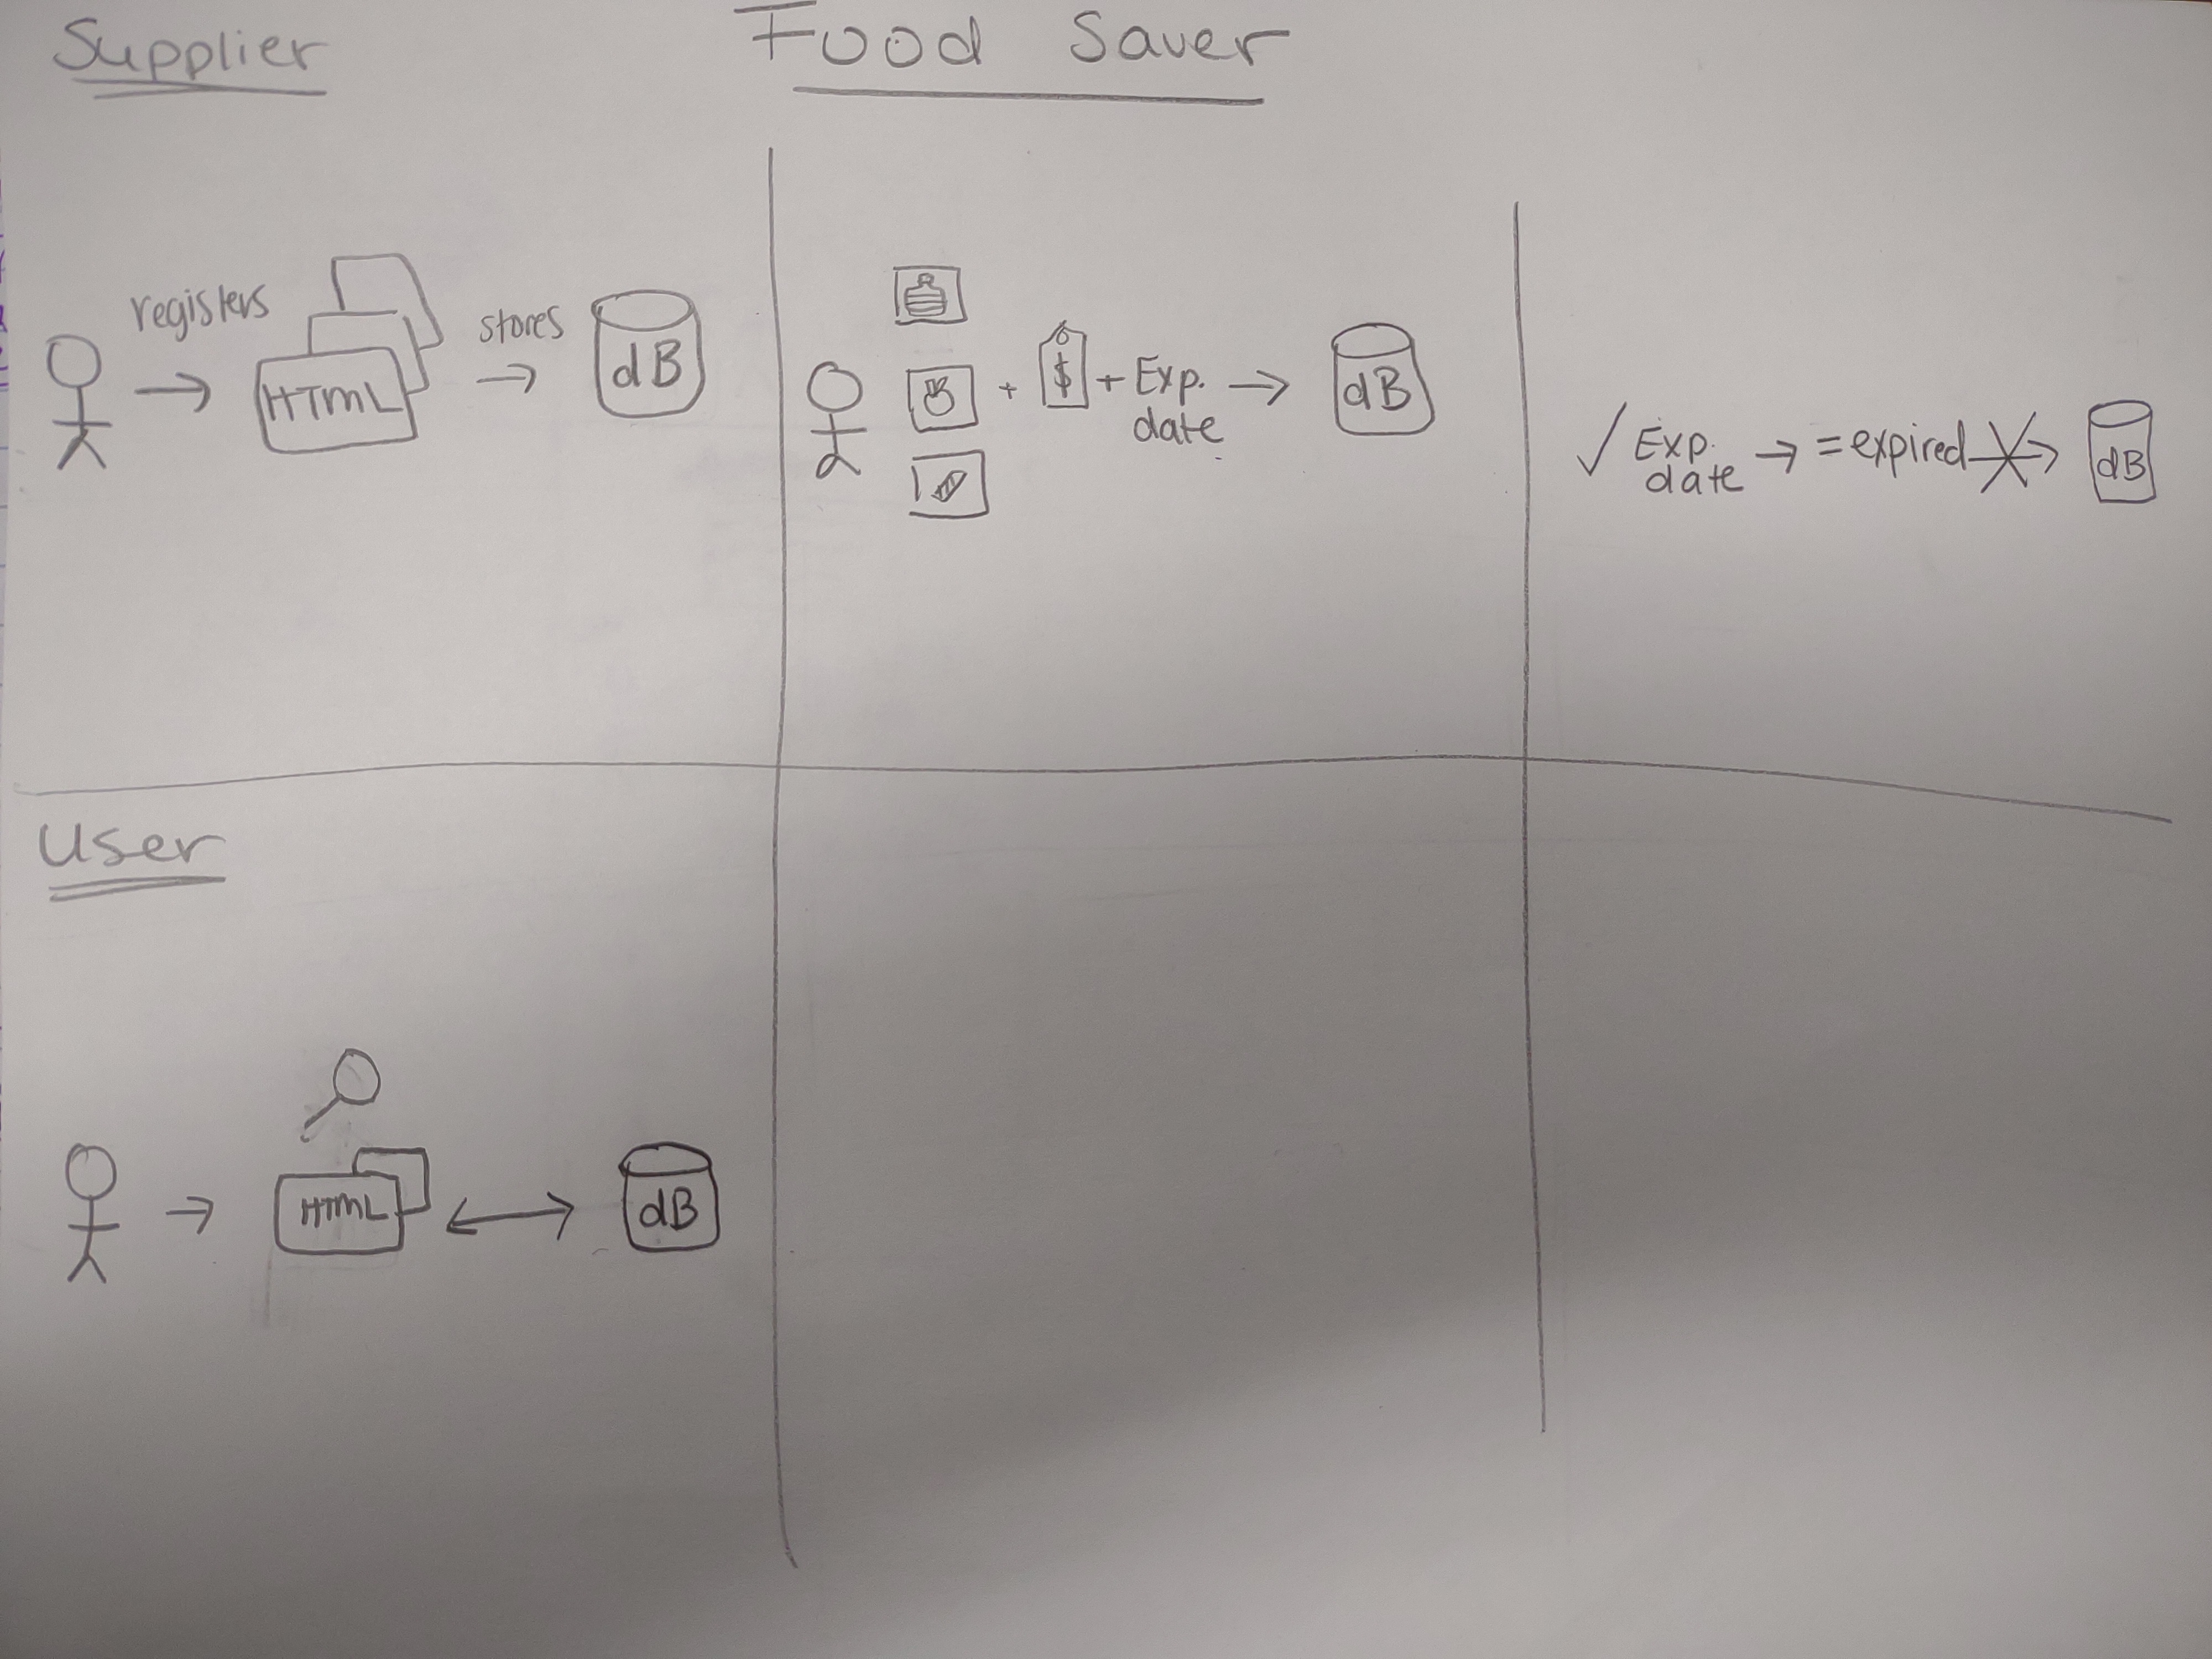 Supplier
Food Saver
registers
HTML
stores
dB
+ $ + Exp.
date
dB
✓ Exp.
date
= expired
dB
User
HTML
dB